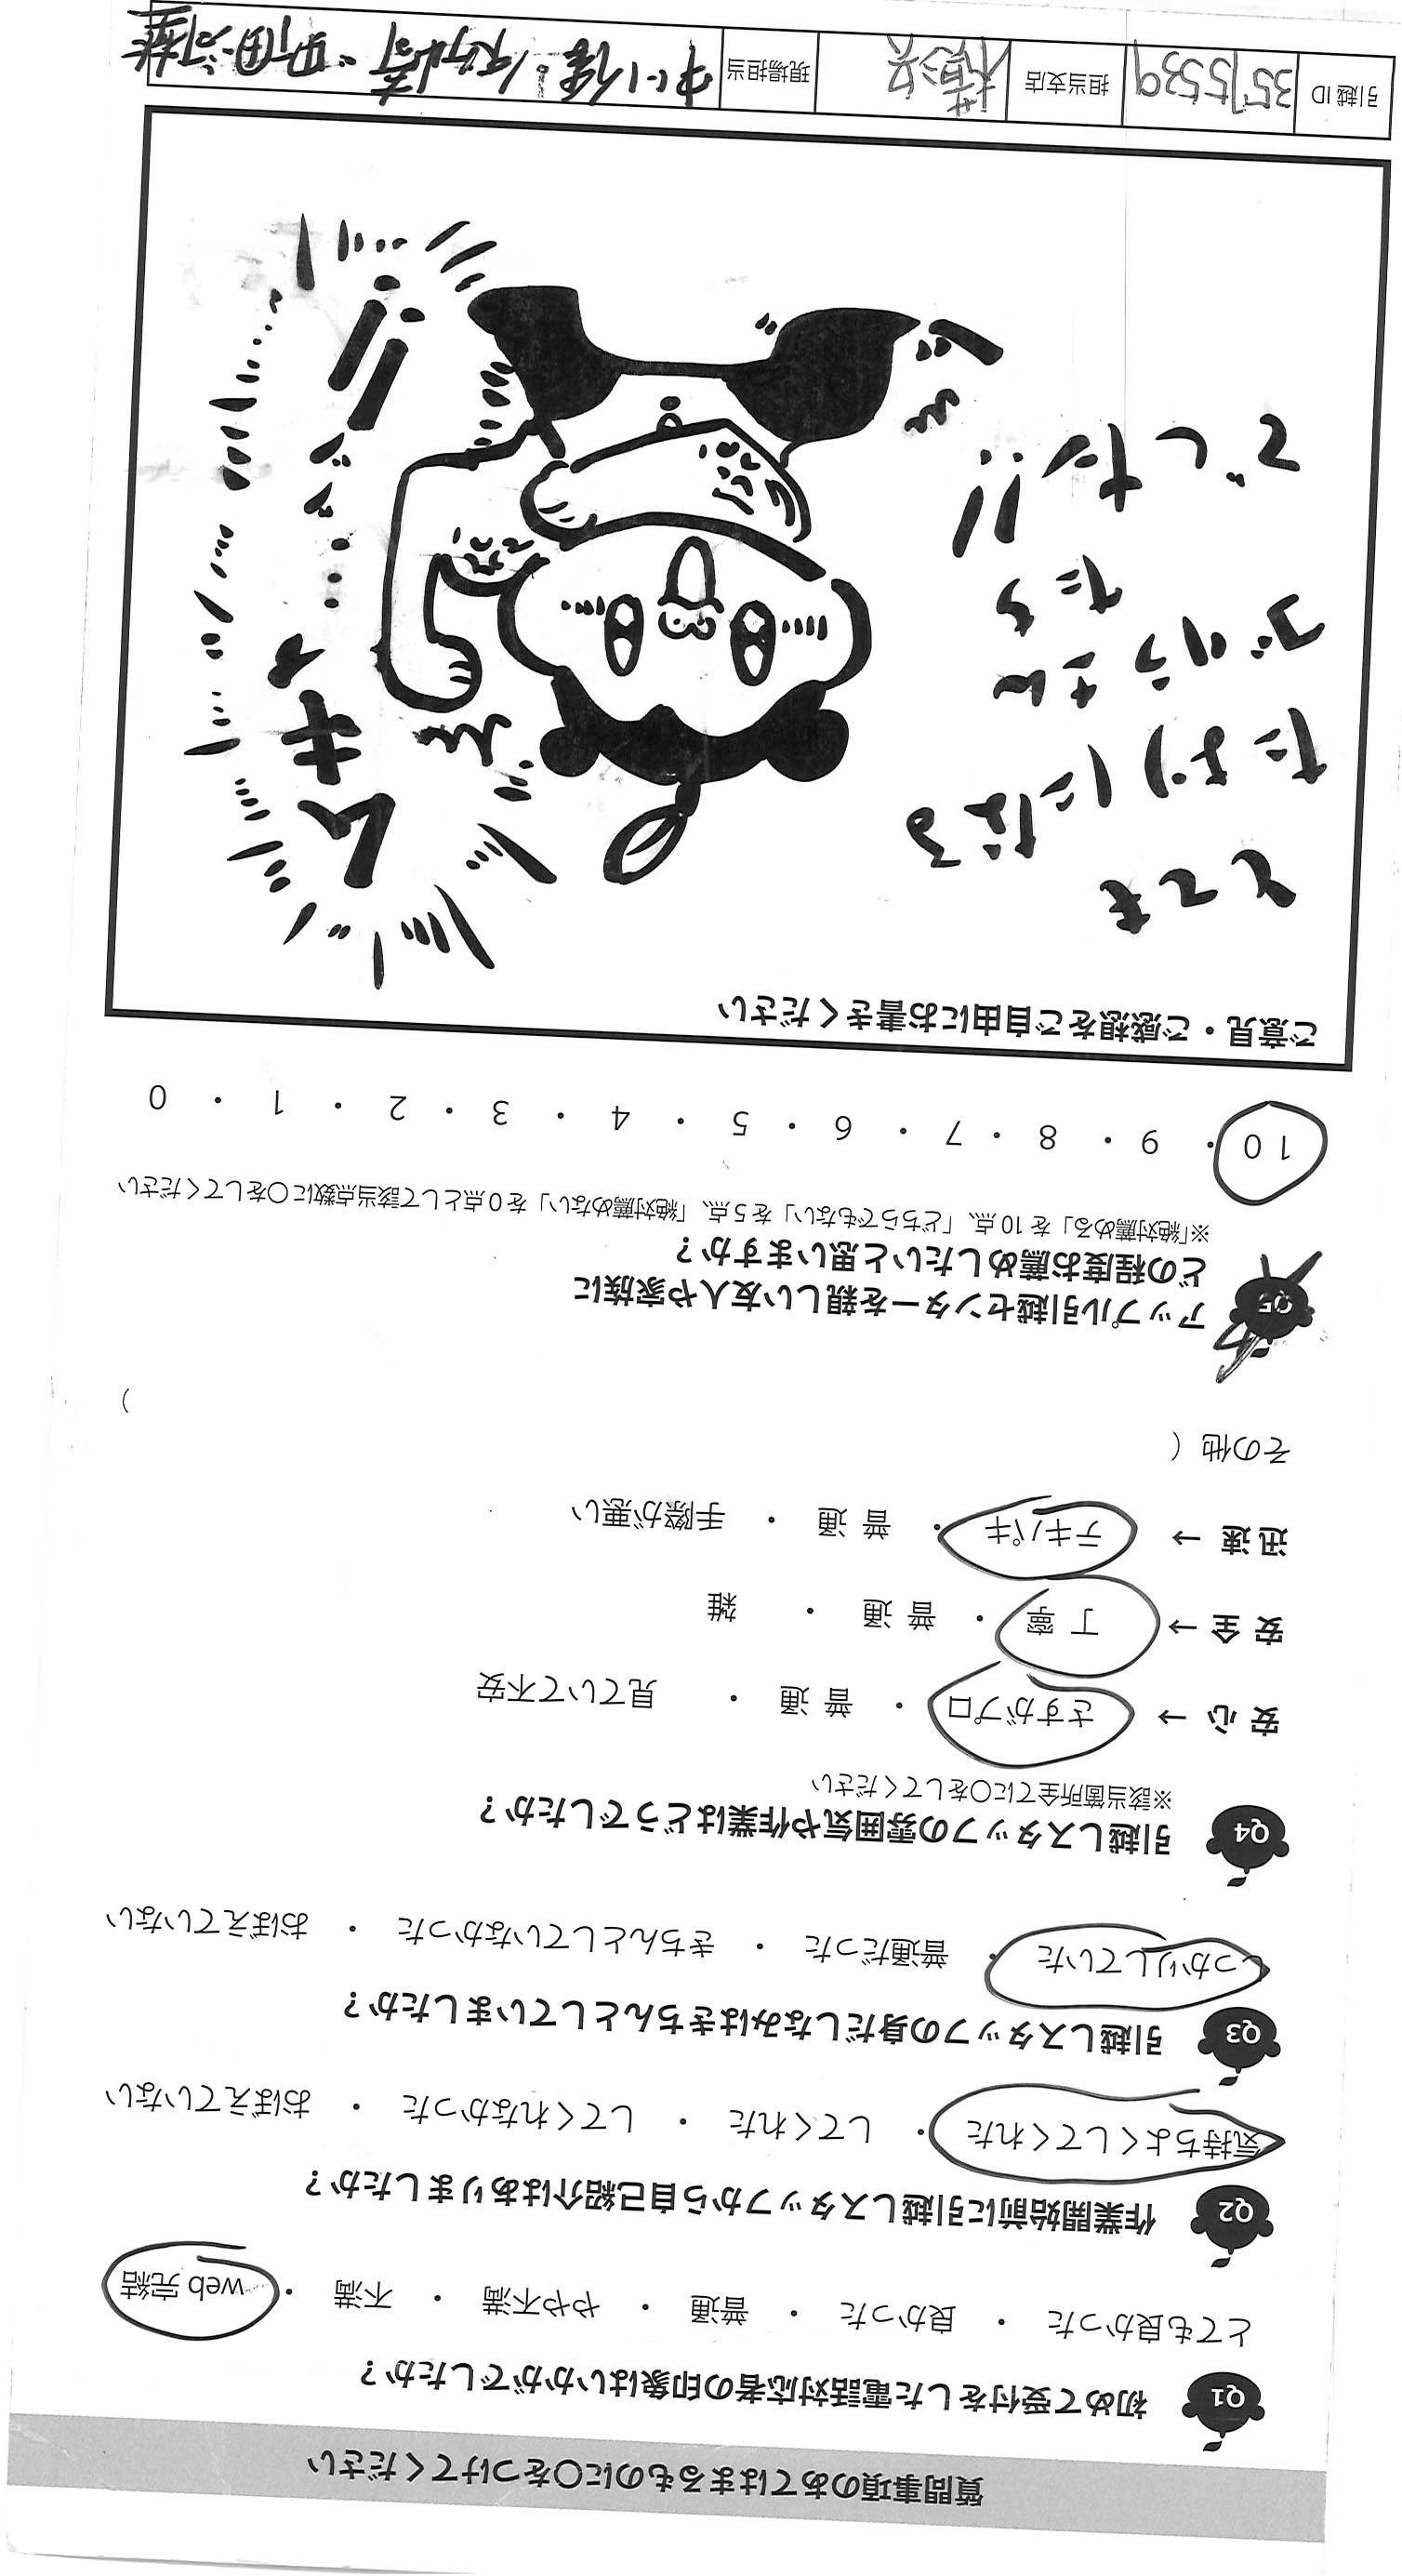 質問事項のあてはまるものに〇をつけてください
Q1 初めて受付をした電話対応者の印象はいかがでしたか？
とても良かった ・ 良かった ・ 普通 ・ やや不満 ・ 不満 ・ web 完結
Q2 作業開始前に引越しスタッフから自己紹介はありましたか？
気持ちよくしてくれた ・ してくれた ・ してくれなかった ・ おぼえていない
Q3 引越しスタッフの身だしなみはきちんとしていましたか？
しっかりしていた ・ 普通だった ・ きちんとしていなかった ・ おぼえていない
Q4 引越しスタッフの雰囲気や作業はどうでしたか？
※該当箇所全てに〇をしてください
安心 → さすがプロ ・ 普通 ・ 見ていて不安
安全 → 丁寧 ・ 普通 ・ 雑
迅速 → テキパキ ・ 普通 ・ 手際が悪い
その他（ ）
Q5 アップル引越センターを親しい友人や家族に
どの程度お薦めしたいと思いますか？
※「絶対薦める」を 10 点、「どちらでもない」を 5 点、「絶対薦めない」を 0 点として該当点数に〇をしてください
10 ・ 9 ・ 8 ・ 7 ・ 6 ・ 5 ・ 4 ・ 3 ・ 2 ・ 1 ・ 0
ご意見・ご感想をご自由にお書きください
とても
たよりになる
ゴリラさん
たち
でした!!
ムキッ!!
引越 ID 3575539 担当支店 横浜 現場担当